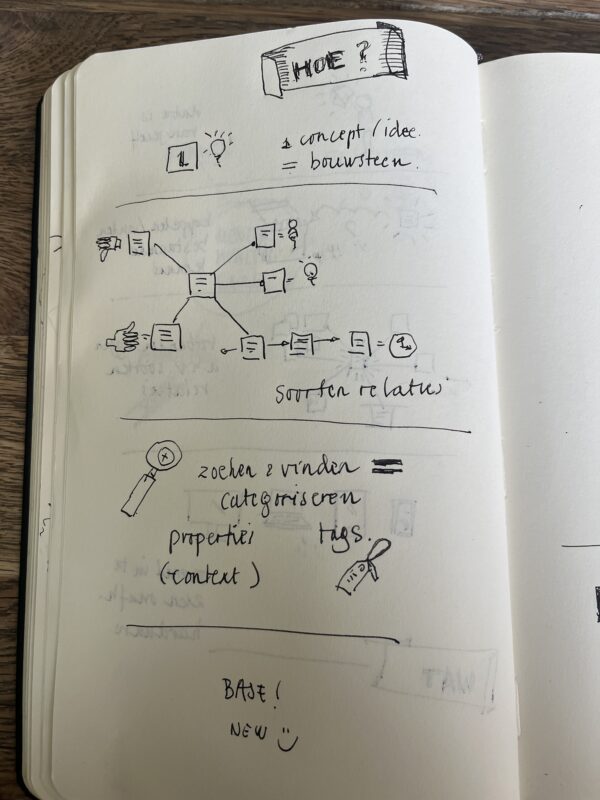 HOE?
1
1 concept / idee.
= bouwsteen.
soorten relaties
zoeken & vinden =
categoriseren
properties tags.
(context)
BASE!
NEW
WAT